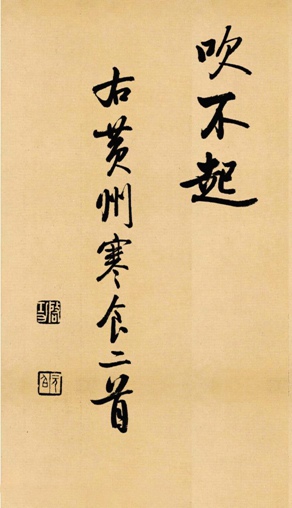 吹不起
右黄州寒食二首